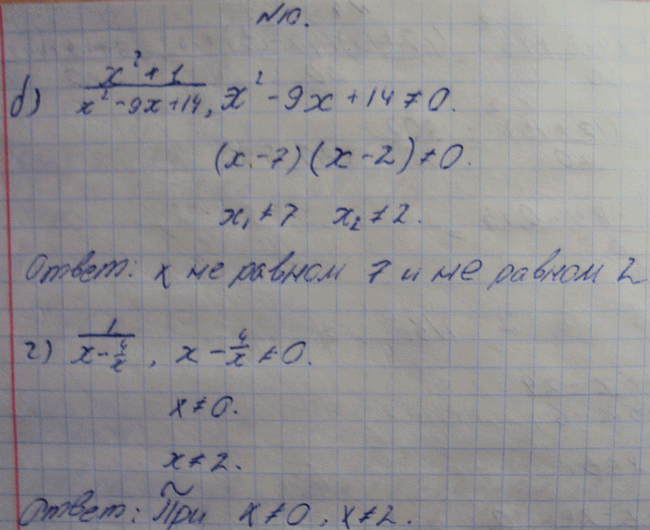 №10.
б) (x² + 1)/(x² - 9x + 14), x² - 9x + 14 ≠ 0.
(x - 7)(x - 2) ≠ 0.
x₁ ≠ 7 x₂ ≠ 2.
Ответ: x не равном 7 и не равном 2
г) 1/(x - 4/x), x - 4/x ≠ 0.
x ≠ 0.
x ≠ 2.
Ответ: При x ≠ 0, x ≠ 2.